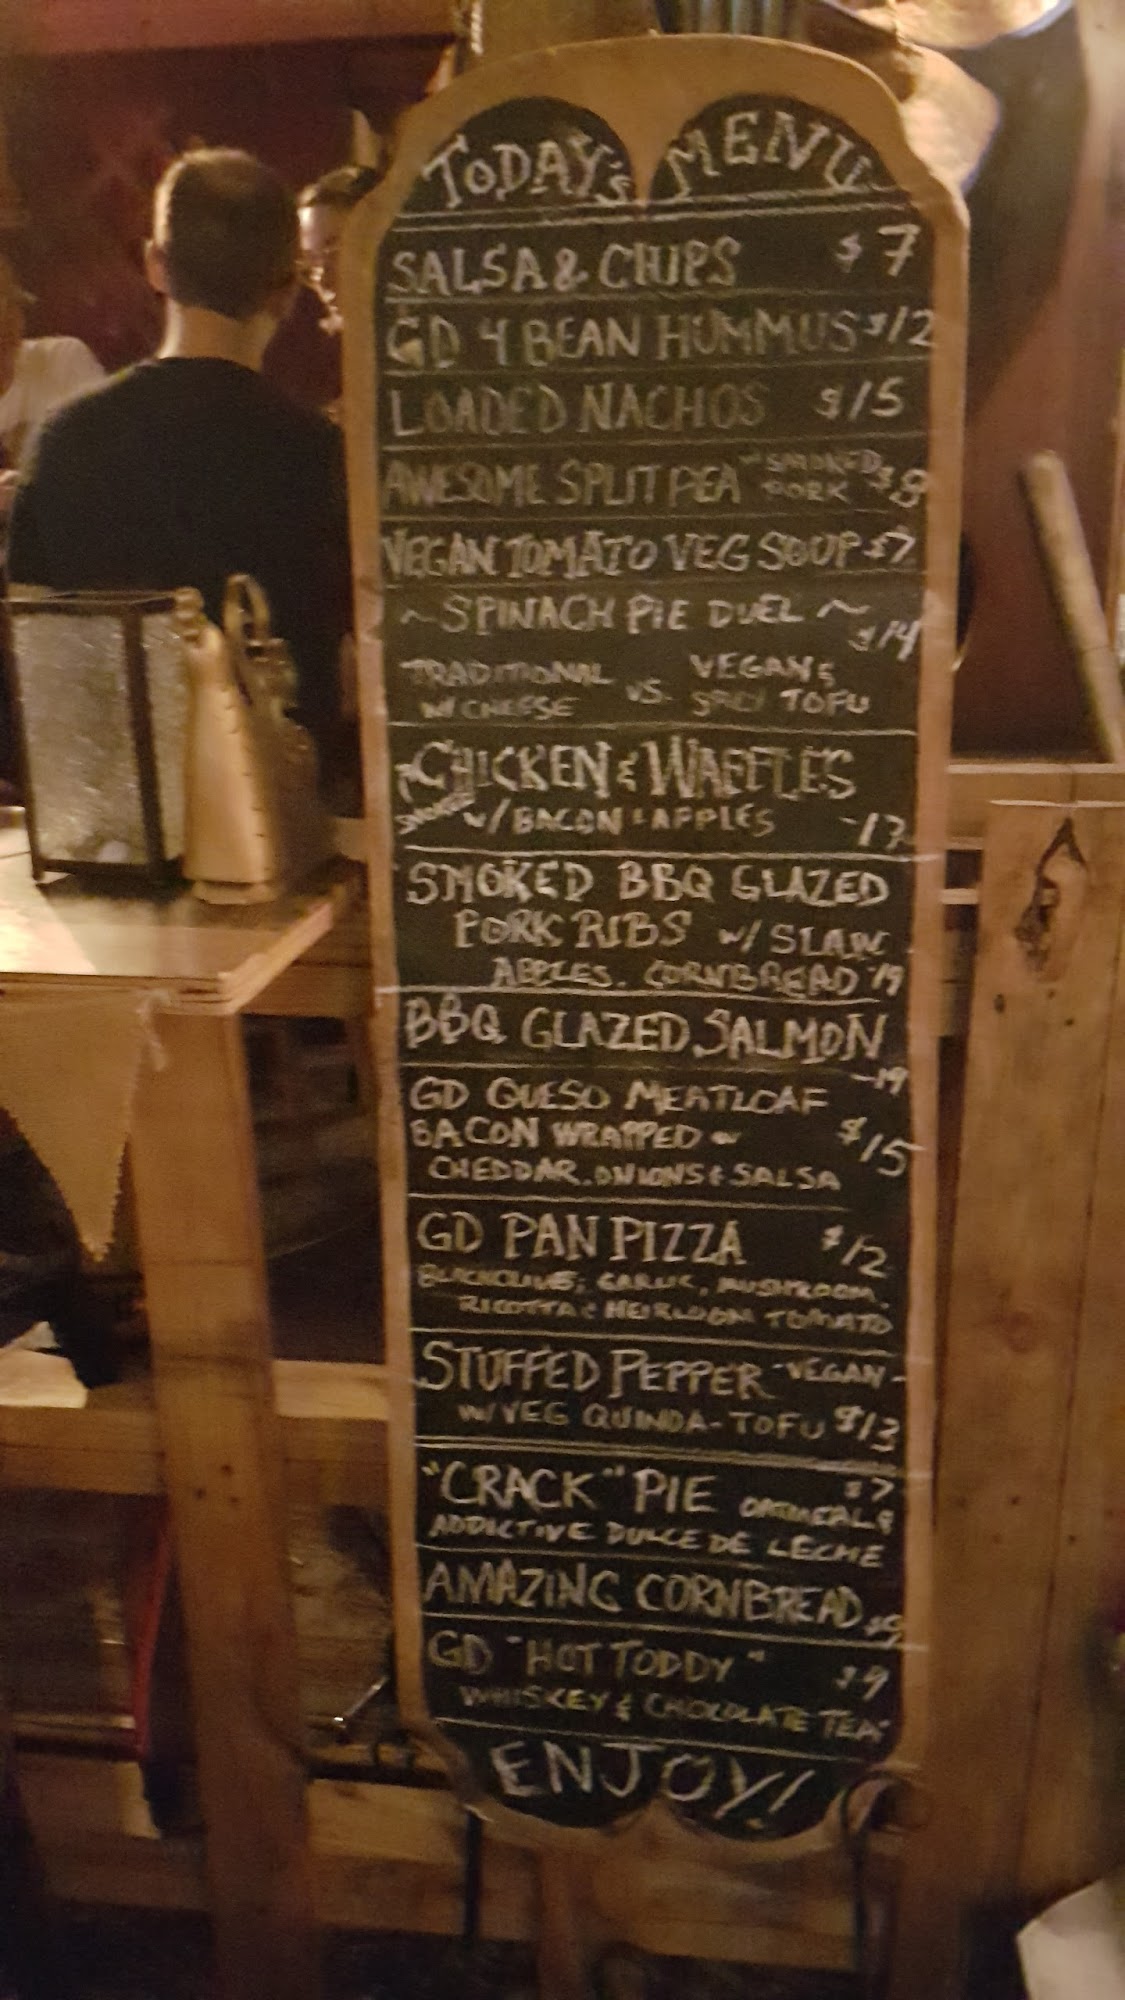 TODAY'S MENU
SALSA & CHIPS $7
GD 4 BEAN HUMMUS $12
LOADED NACHOS $15
AWESOME SPLIT PEA W/ SMOKED PORK $8
VEGAN TOMATO VEG SOUP $7
~SPINACH PIE DUEL~ $14
TRADITIONAL W/ CHEESE VS. VEGAN & SPICY TOFU
CHICKEN & WAFFLES
SMOKED W/ BACON & APPLES -17
SMOKED BBQ GLAZED
PORK RIBS W/ SLAW
APPLES. CORNBREAD 19
BBQ GLAZED SALMON
-19
GD QUESO MEATLOAF
BACON WRAPPED W $15
CHEDDAR. ONIONS & SALSA
GD PAN PIZZA $12
BLACK OLIVES, GARLIC, MUSHROOM,
RICOTTA & HEIRLOOM TOMATO
STUFFED PEPPER -VEGAN-
W/ VEG QUINOA-TOFU $13
"CRACK" PIE $7
OATMEAL &
ADDICTIVE DULCE DE LECHE
AMAZING CORNBREAD
GD "HOT TODDY" $9
WHISKEY & CHOCOLATE TEA
ENJOY!